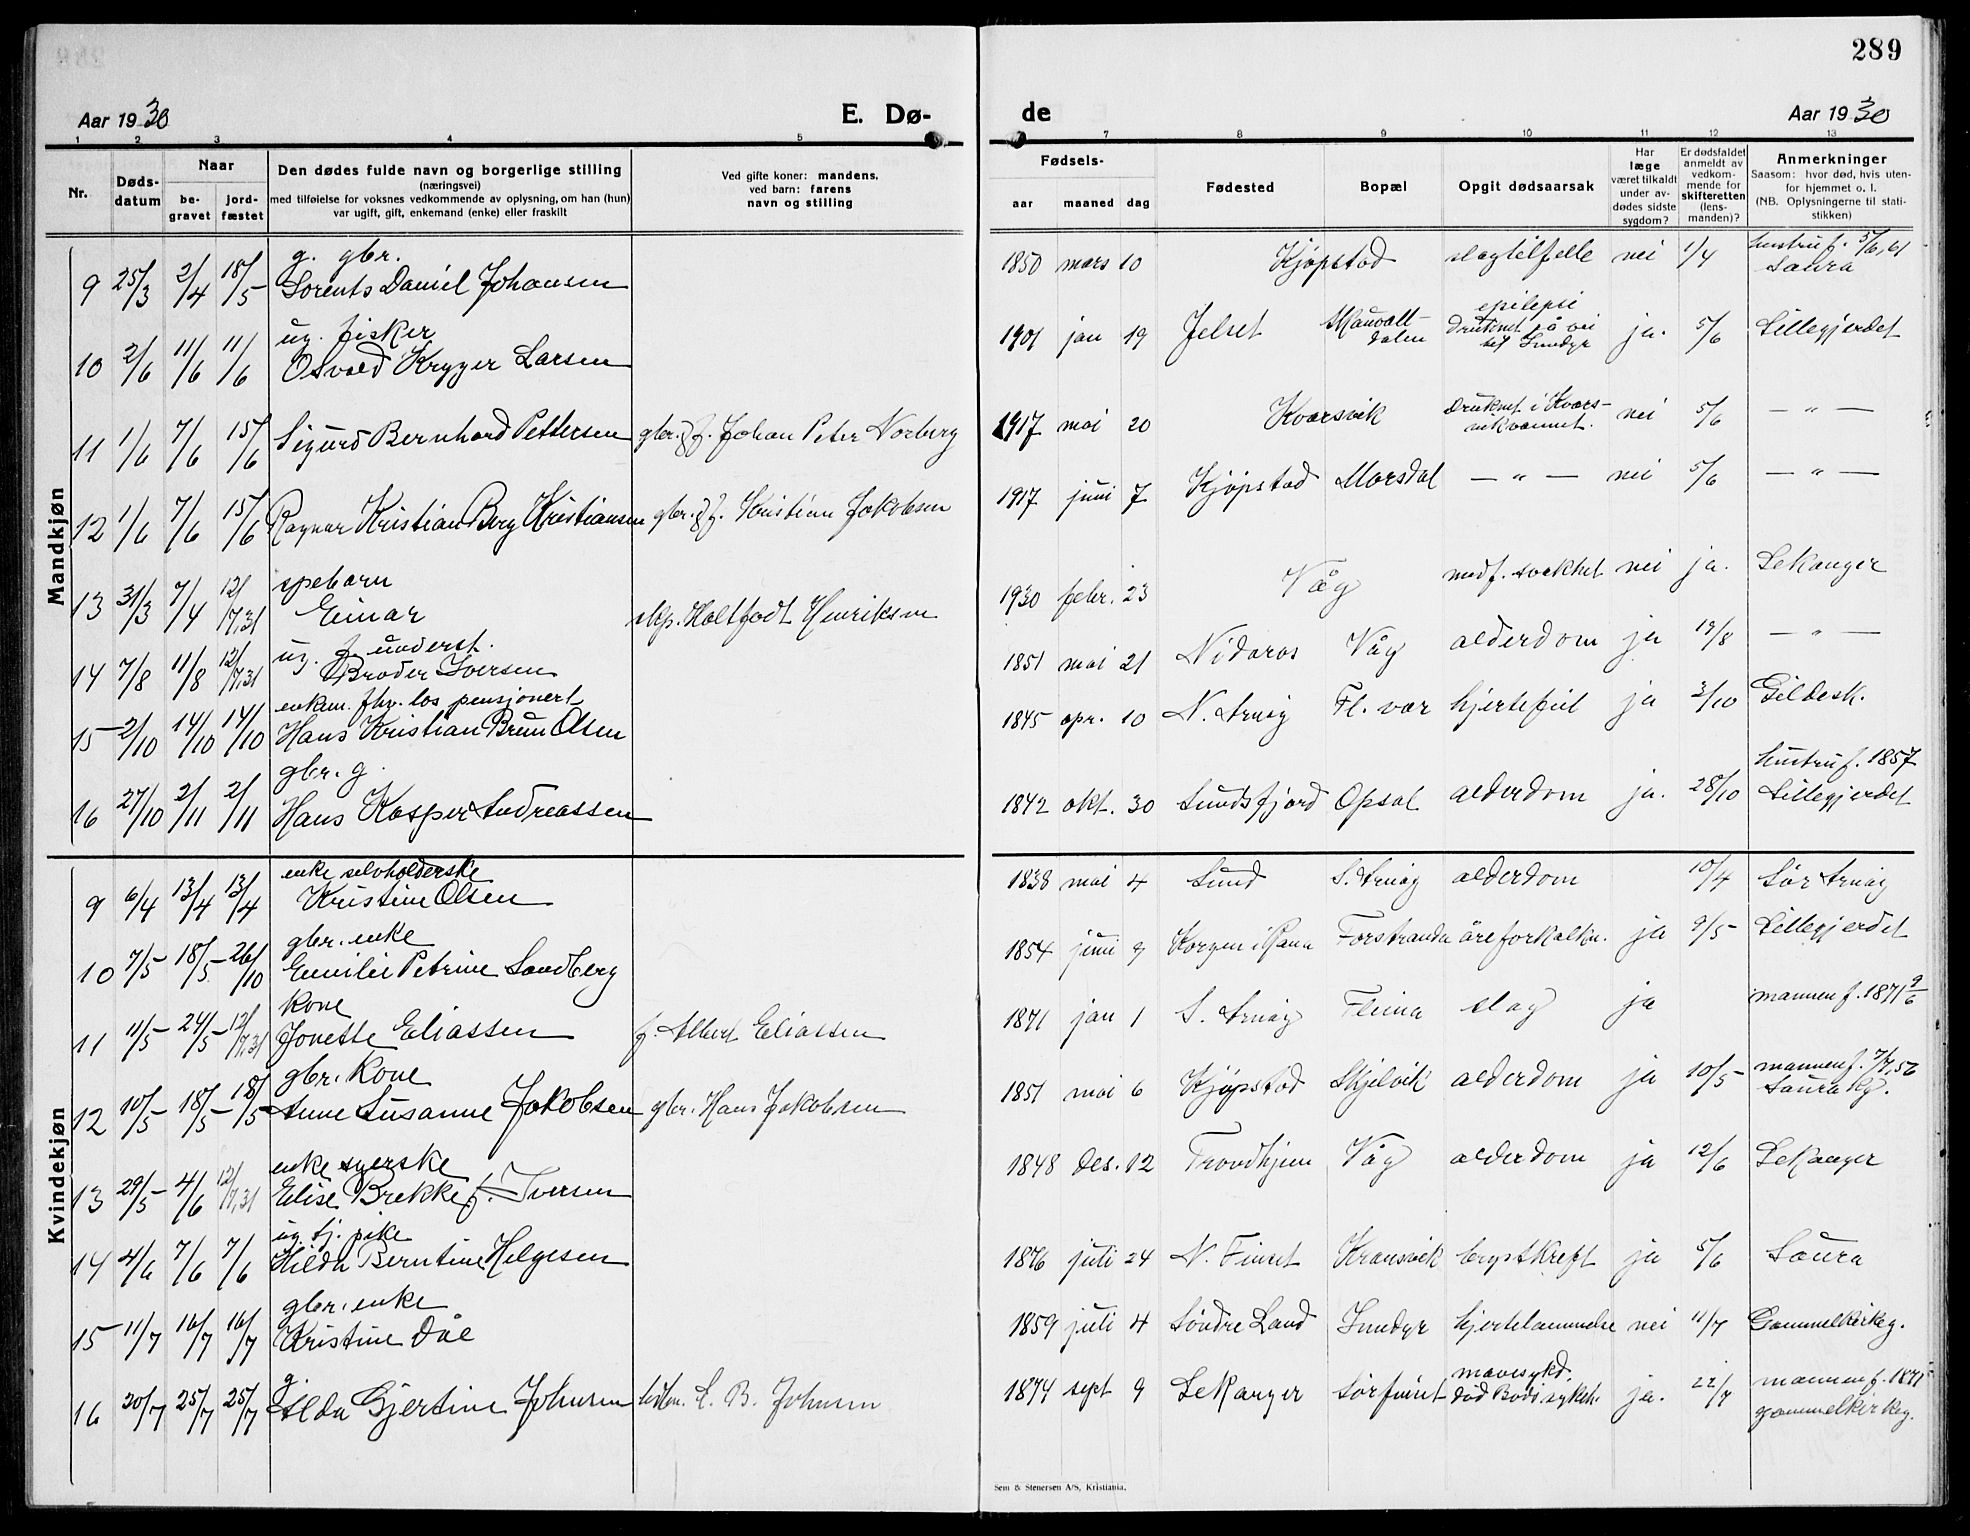 289
Aar 1930 E. Dø- de Aar 1930
1 2 3 4 5 7 8 9 10 11 12 13
Nr. Døds-datum Naar be-gravet jord-fæstet
Den dødes fulde navn og borgerlige stilling
(næringsvei)
med tilføielse for voksnes vedkommende av oplysning, om han (hun)
var ugift, gift, enkemand (enke) eller fraskilt
Ved gifte koner: mandens,
ved barn: farens
navn og stilling
Fødsels-
aar maaned dag
Fødested Bopæl Opgit dødsaarsak
Har læge været tilkaldt under av-dødes sidste sygdom?
Er dødsfaldet anmeldt av vedkom-mende for skifteretten (lens-manden)?
Anmerkninger
Saasom: hvor død, hvis uten-for hjemmet o. l.
(NB. Oplysningerne til stati-stikken)
Mandkjøn
g. gbr.
9 25/3 2/4 18/5 Lorents Daniel Johansen 1850 mars 10 Kjøpstad slagtilfelle nei 1/4 hustru f. 5/6, 61 Saura
ug. fisker
10 2/6 11/6 11/6 Osvald Kryger Larsen 1901 jan 19 Jelset Skauvoll-dalen epilepsi druknet på vei til Inndyr ja. 5/6 Lillegjerdet
11 1/6 7/6 15/6 Sigurd Bernhard Pettersen gbr. & f. Johan Peter Norberg 1917 mai 20 Kvarsvik druknet i Kvars-vikvannet. nei 5/6 — " —
12 1/6 7/6 15/6 Ragnar Kristian Berg Kristiansen gbr. & f. Kristian Jakobsen 1917 juni 7 Kjøpstad Morsdal — " — nei 5/6 — " —
spebarn
13 31/3 7/4 12/7,31 Einar Holtfodt Henriksen 1930 febr. 23 Våg medf. svakhet nei ja. Lekanger
ug. f. underst.
14 7/8 11/8 12/7,31 Broder Iversen 1851 mai 21 Nidaros Våg alderdom ja 19/8 — " —
enkem. fhv. los pensjonert
15 2/10 14/10 14/10 Hans Kristian Brun Olsen 1845 apr. 10 N. Arnøy Fl. vær hjertefeil ja 3/10 Gildesk.
gbr. g.
16 27/10 2/11 2/11 Hans Kasper Andreassen 1842 okt. 30 Sundsfjord Opsal alderdom ja. 28/10 hustru f. 1857 Lillegjerdet
Kvindekjøn
enke selvholderske
9 6/4 13/4 13/4 Kristine Olsen 1838 mai 4 Sund S. Arnøy alderdom 10/4 Sør Arnøy
gbr. enke
10 7/5 18/5 26/10 Emilie Petrine Sandberg 1854 juni 9 Korgen i Rana Forstranda åreforkalkn. ja 9/5 Lillegjerdet
kone
11 11/5 24/5 12/7,31 Jonette Eliassen f. Albert Eliassen 1871 jan 1 S. Arnøy Fleina slag ja mannen f. 1871 9/6
gbr. kone
12 10/5 18/5 18/5 Anne Susanne Jakobsen gbr. Hans Jakobsen 1851 mai 6 Kjøpstad Skjelvik alderdom ja 10/5 mannen f. 7/7, 56 Saura kg.
enke syerske
13 29/5 4/6 12/7,31 Elise Brekke f. Iversen 1848 des. 12 Trondhjem Våg alderdom ja 12/6 Lekanger
ug. tj. pike
14 4/6 7/6 7/6 Hilda Berntine Helgesen 1876 juli 24 N. Finset Kransvik brystkreft ja 5/6 Saura
gbr. enke
15 11/7 16/7 16/7 Kristine Dåe 1859 juli 4 Søndre Land Inndyr hjertelammelse nei 11/7 Gammelkirkeg.
g.
16 20/7 25/7 25/7 Alda Gjertine Johnsen E. B. Johnsen 1874 sept 9 Lekanger Sørfinset mavesykd. død Bodø sykeh. ja. 22/7 mannen f. 1871 gammelkirkeg.
Sem & Stenersen A/S, Kristiania.